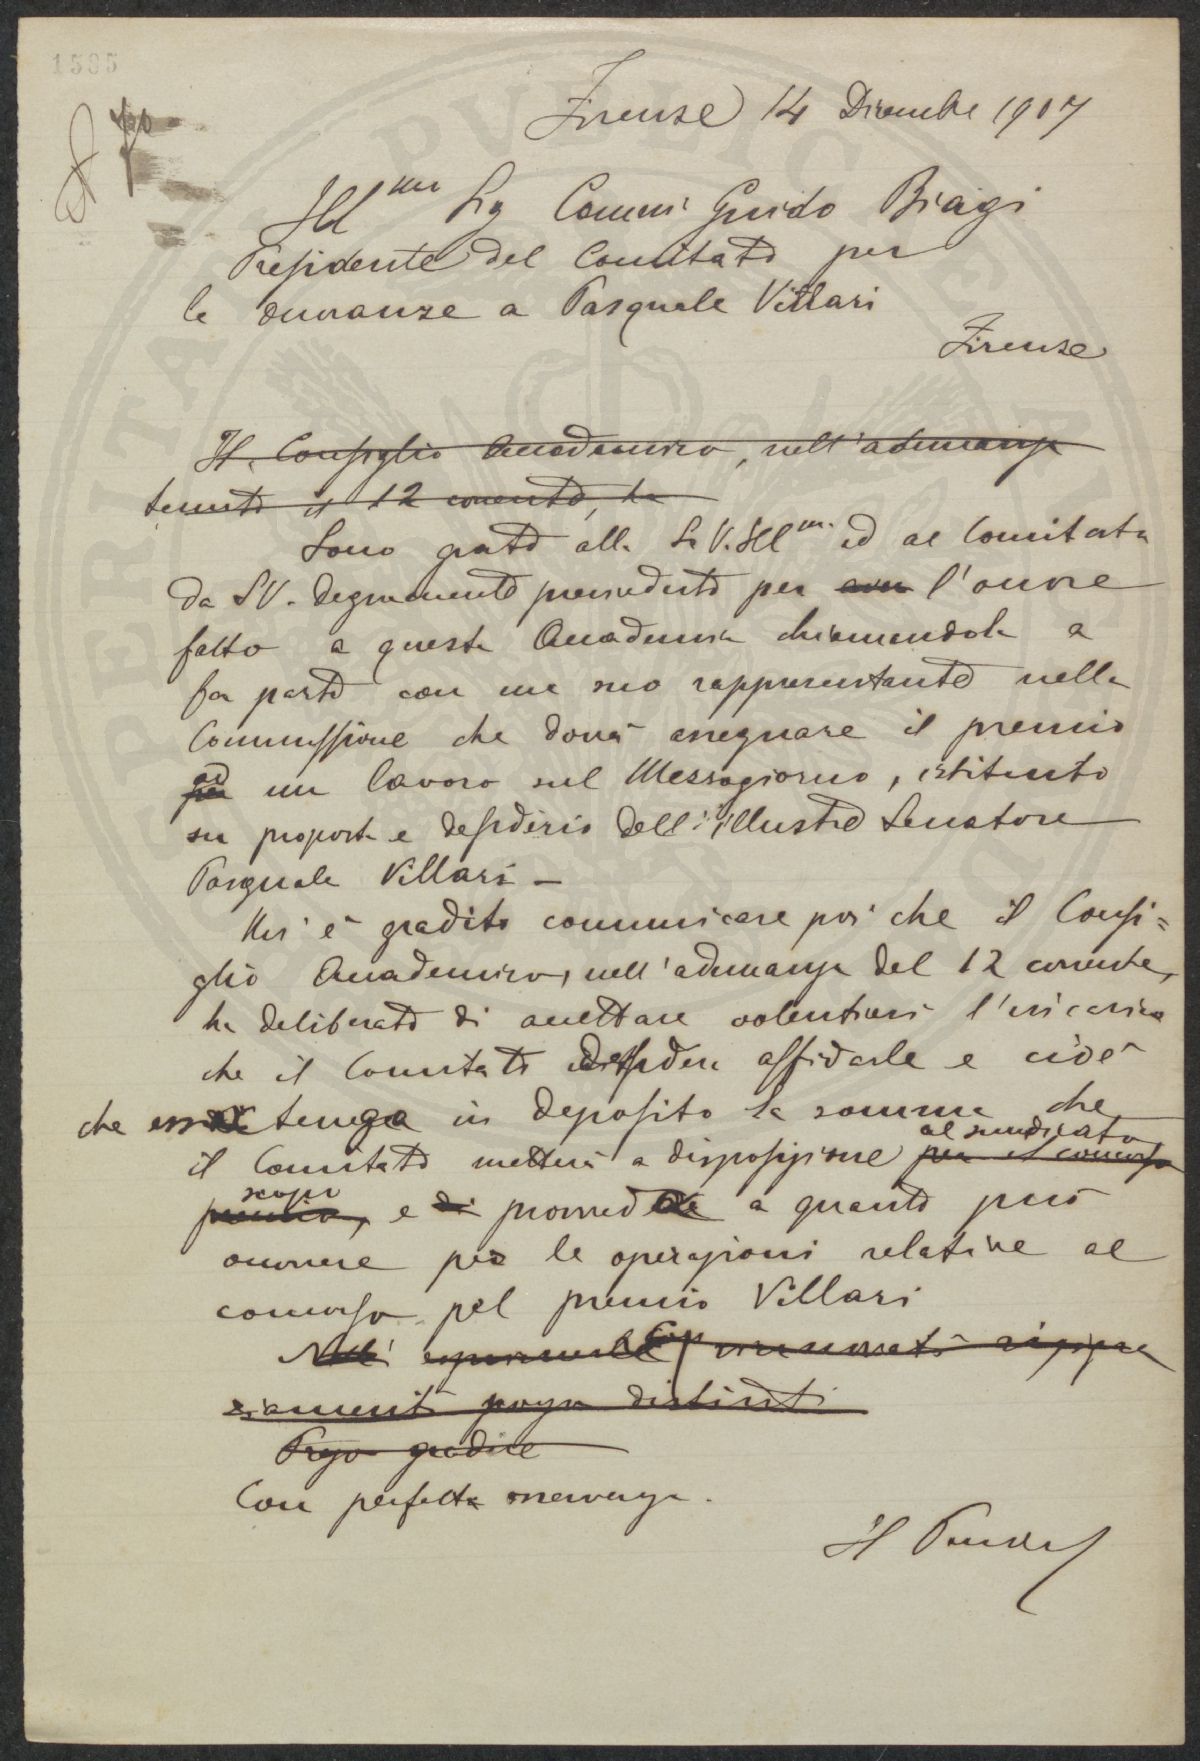 1595
Firenze 14 Dicembre 1907
Ill mo Sig Comm Guido Biagi
Presidente del Comitato per
le onoranze a Pasquale Villari
Firenze
Il Consiglio Accademico, nell'adunanza
tenuta il 12 corrente, ha
Sono grato alla S. V. Ill ma ed al Comitato
da SV. degnamente presieduto per aver l'onore
fatto a questa Accademia chiamandola a
far parte con un suo rappresentante nella
Commissione che dovrà assegnare il premio
ad
per un lavoro sul Mezzogiorno, istituito
su proposta e desiderio dell'illustre Senatore
Pasquale Villari –
Mi è gradito comunicare poi che il Consi=
glio Accademico, nell'adunanza del 12 corrente,
ha deliberato di accettare volentieri l'incarico
che il Comitato desidera affidarle e cioè
che essa tenga in deposito la somma che
al sundicato
il Comitato metterà a disposizione per il concorso
scopo
premio, e di provvedere a quanto può
occorrere per le operazioni relative al
concorso pel premio Villari
rinnovati ringra
ziamenti porgo distinti
Prego gradire
Con perfetta osservanza.
Il Presid